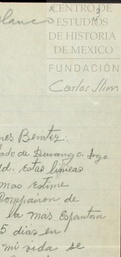 blanco
CENTRO DE
ESTUDIOS
DE HISTORIA
DE MEXICO
FUNDACIÓN
Carlos Slim
nes Benitez.
tado de Durango. Lugo
ld. Estas lineas
mas estime
Compañon de
la mas Espantosa
5 dias en
mi vida se